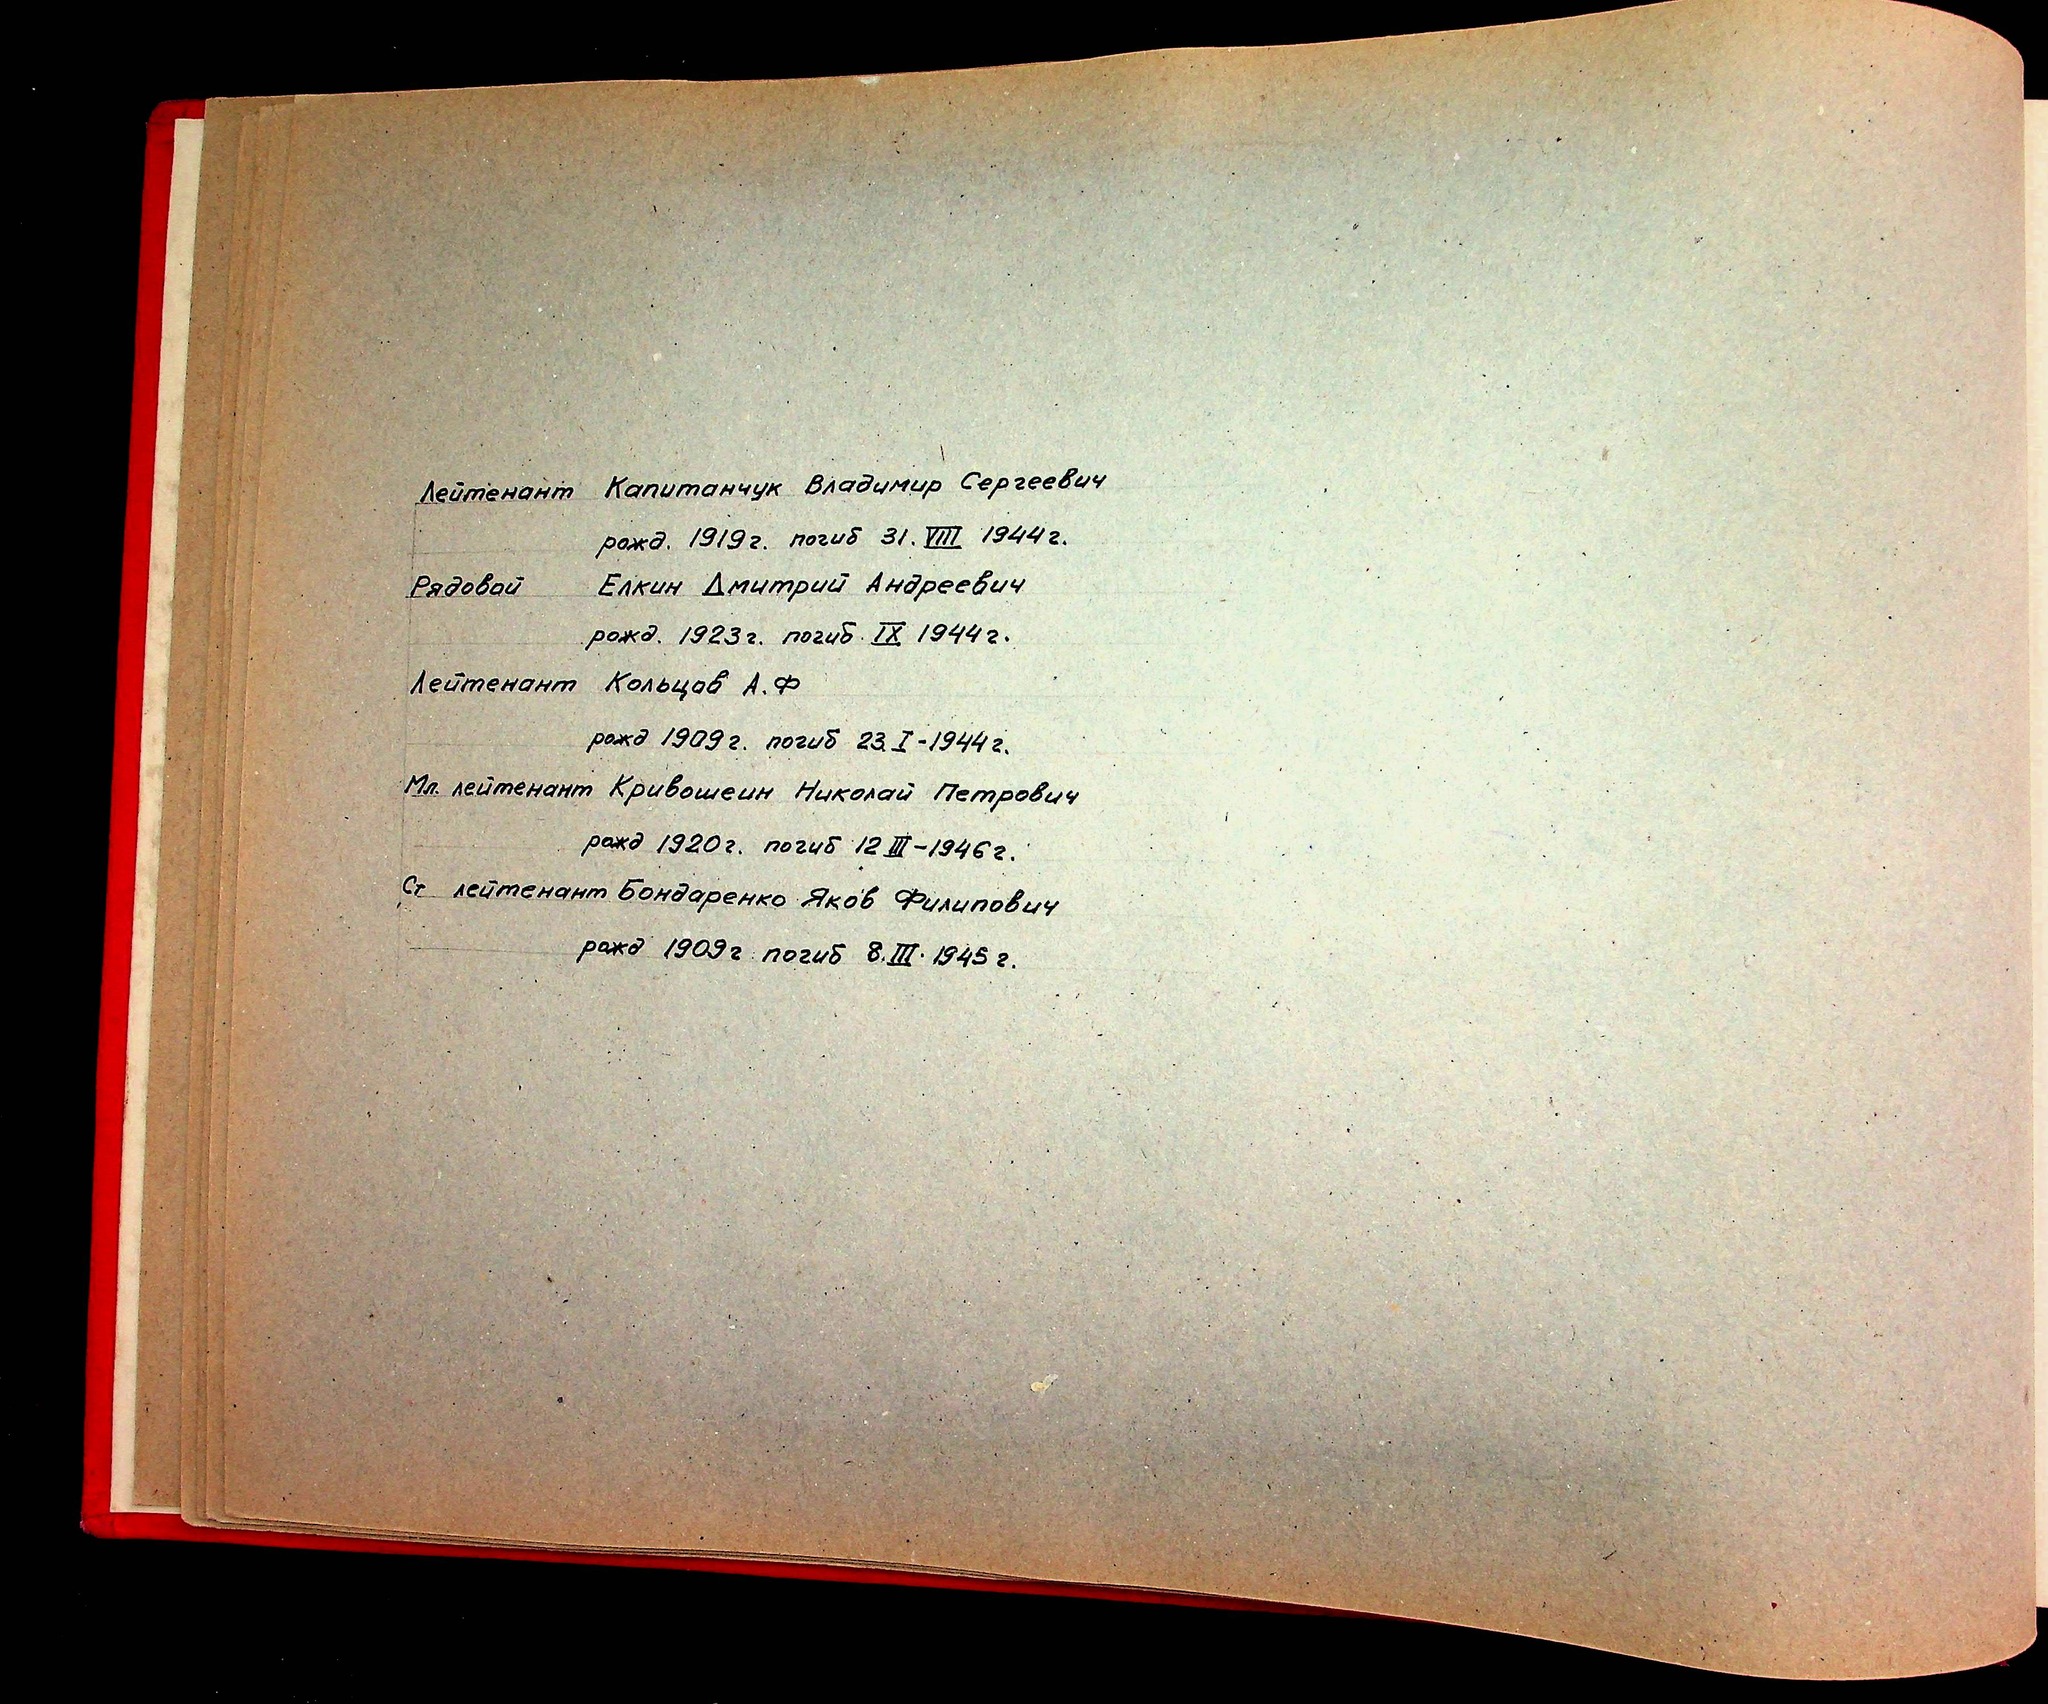 Лейтенант Капитанчук Владимир Сергеевич
рожд. 1919г. погиб 31. VIII 1944г.
Рядовой Елкин Дмитрий Андреевич
рожд. 1923г. погиб IX 1944г.
Лейтенант Кольцов А.Ф
рожд 1909г. погиб 23. I-1944г.
Мл. лейтенант Кривошеин Николай Петрович
рожд 1920г. погиб 12 III-1946г.
Ст лейтенант Бондаренко Яков Филипович
рожд 1909г погиб 8. III. 1945г.